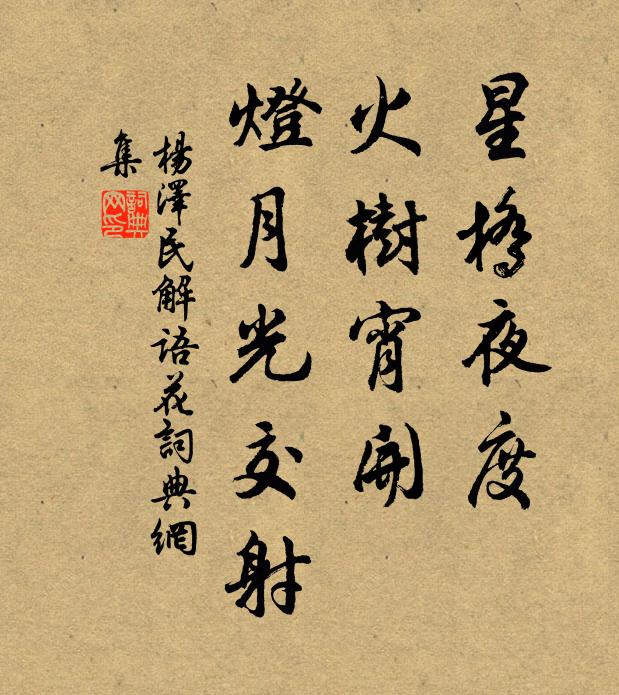 星橋夜度
火樹宵開
燈月光交射
楊澤民解語花詞典網
集
詞典
网印